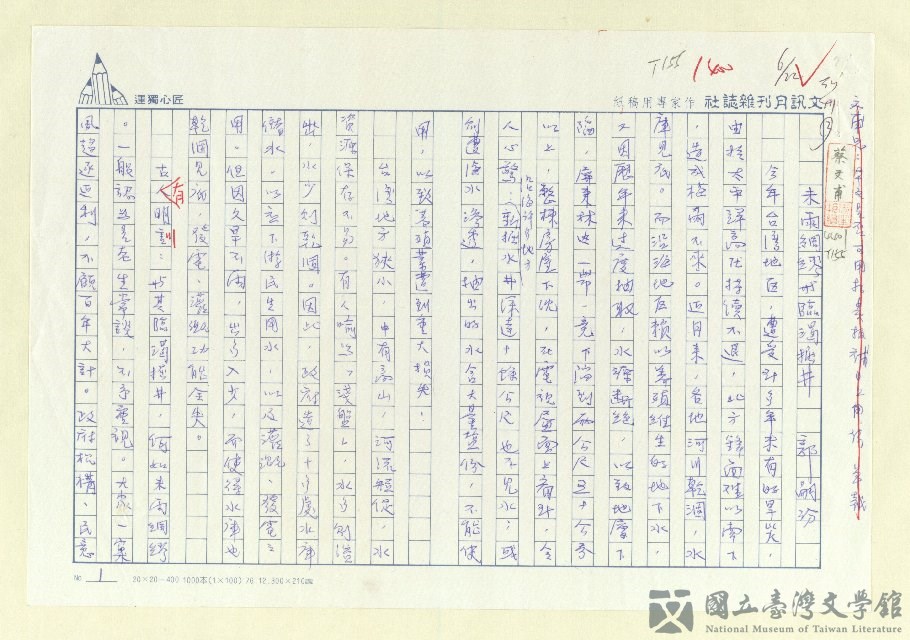 T155
1400
6/22
匠心獨運
文訊月刊雜誌社 作家專用稿紙
蔡文甫
未雨綢繆與臨渴掘井 郭嗣汾
今年台灣地區,遭受到多年未有的旱災,
由於太平洋高壓持續不退,北方鋒面難以南下
,造成梅雨不來。近月來,各地河川乾涸,水
庫見底。而沿海地區賴以養殖維生的地下水,
又因歷年來過度抽取,水源斷絕,以致地層下
陷,屏東林邊一帶,竟下陷到兩公尺五十公分
以上,整棟房屋下沉,在電視屏幕上看到,令
人心驚,沿海許多地方新掘水井深達十餘公尺也不見水;或
則遭海水滲透,抽出的水含大量鹽份,不能使
用,以致養殖業遭到重大損失。
台灣地方狹小,中有高山,河流短促,水
資源保存不易。有人喻為「淺盤」,水多則溢
出,水少則乾涸。因此,政府造了十多處水庫
儲水,以應下游民生用水,以及灌溉、發電之
用。但因久旱不雨,出多入少,而使得水庫也
乾涸見底,發電、灌溉功能全失。
古有明訓:與其臨渴掘井,何如未雨綢繆
。一般認為是老生常談,不予重視。大家一窩
風超逐近利,不顧百年大計。政府機構、民意
No 1 20×20=400 1000本(1×100) 76.12. 300×210㎜
國立臺灣文學館
National Museum of Taiwan Literature